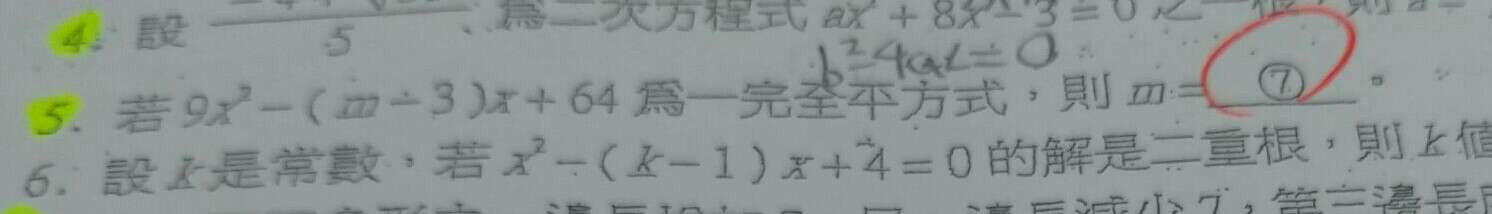 4. 設 5 、爲二次方程式 ax² + 8x - 3 = 0 之一根,則
b²-4ac=0
5. 若 9x² - ( m - 3 ) x + 64 爲一完全平方式,則 m = ⑦ 。
6. 設 k 是常數,若 x² - ( k - 1 ) x + 4 = 0 的解是二重根,則 k 值
邊長減少 7,第三邊長